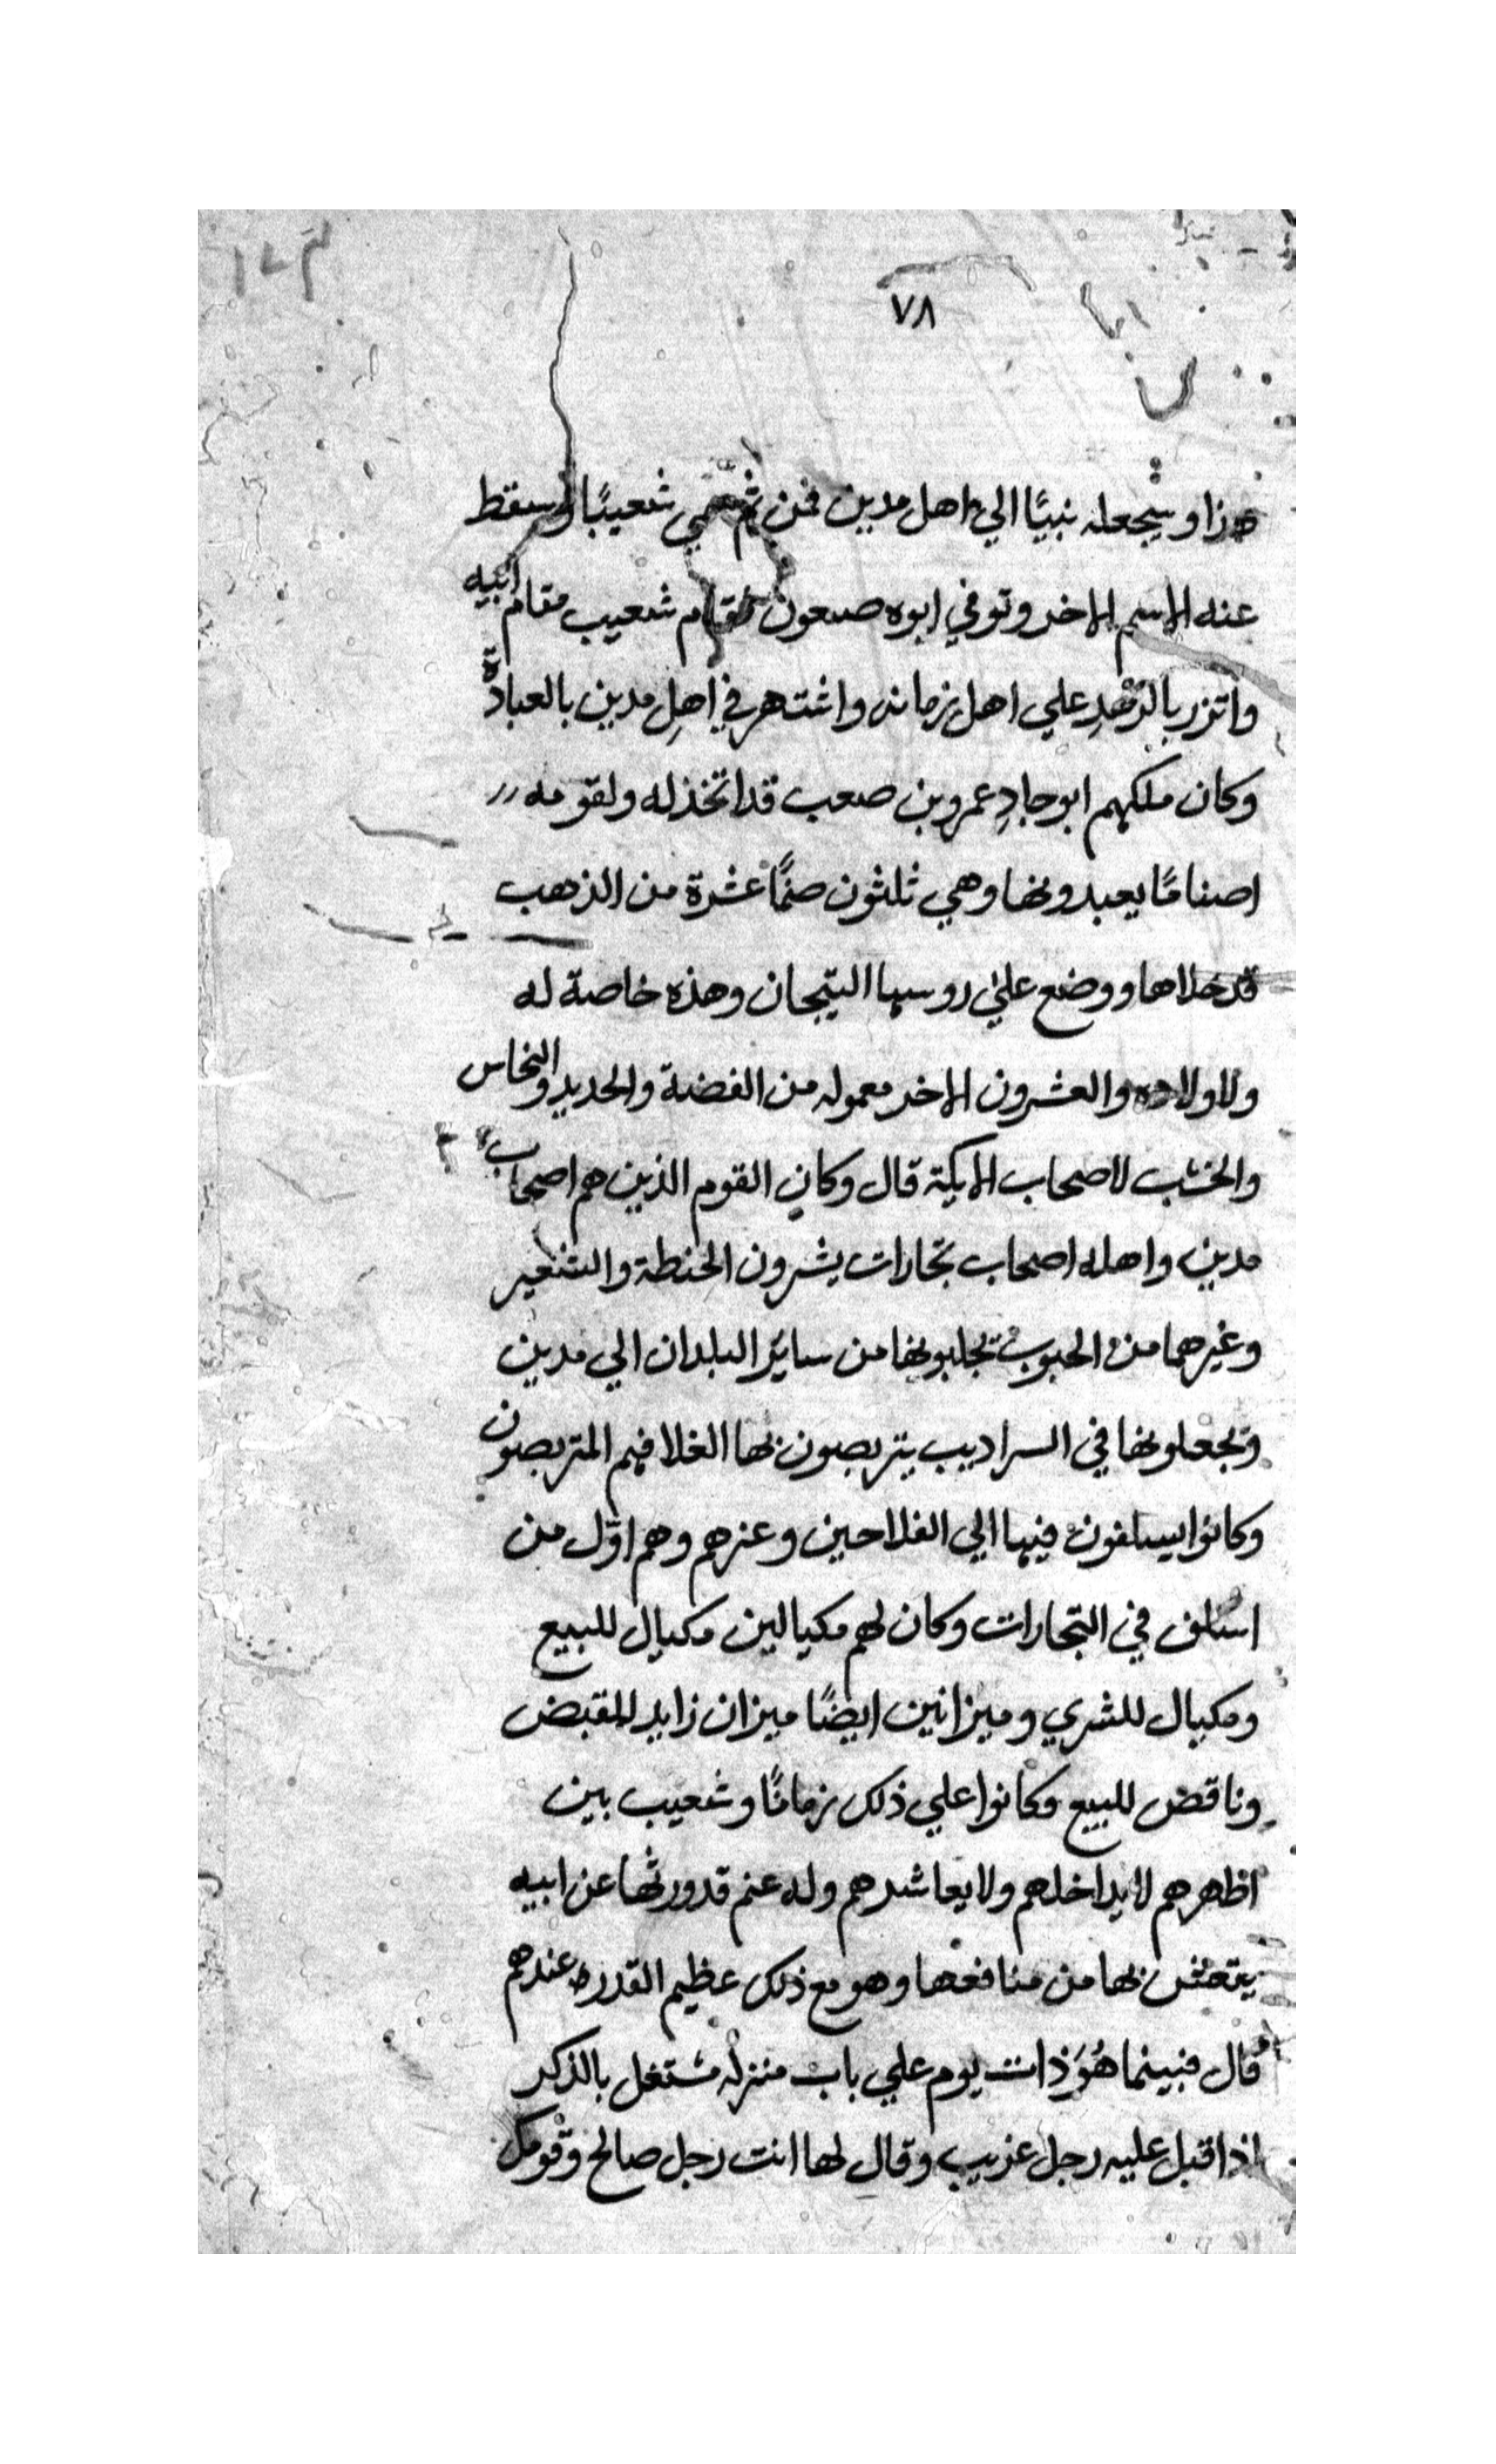 ٧٨
هذا وسيجعله نبيًا الي اهل مدين فمن ثم سمي شعيبًا وسقط
عنه الاسم الاخر وتوفي ابوه صيعون فقام شعيب مقام ابيه
واتزر بالزهدِ علي اهل زمانه واشتهر في اهلِ مدين بالعبادة
وكان ملكهم ابوجادِ عمرو بن صعب قد اتخذ له ولقومه
اصنامًا يعبدونها وهي ثلثون صنمًا عشرة من الذهب
قد حلاها ووضع علي روسها التيجان وهذه خاصة له
ولاولاده والعشرون الاخر معموله من الفضة والحديد والنحاس
والخشب لاصحاب الايكة قال وكان القوم الذين هم اصحاب
مدين واهله اصحاب تجارات يشرون الحنطة والشعير
وغيرهما من الحبوب يجلبونها من ساير البلدان الي مدين
ويجعلونها في السراديب يتربصون بها الغلا فهم المتربصون
وكانوا يسلفون فيها الي الفلاحين وغيرهم وهم اوّل من
اسلف في التجارات وكان لهم مكيالين مكيال للبيع
ومكيال للشري وميزانين ايضًا ميزان زايد للقبض
وناقص للبيع وكانوا علي ذلك زمانًا وشعيب بين
اظهرهم لا يداخلهم ولا يعاشرهم وله غنم قد ورثها عن ابيه
يتعيش بها من منافعها وهو مع ذلك عظيم القدر عندهم
قال فبينما هُوَ ذات يوم علي باب منزله مشتغل بالذكر
اذ اقبل عليه رجل غريب وقال لها انت رجل صالح وقومك